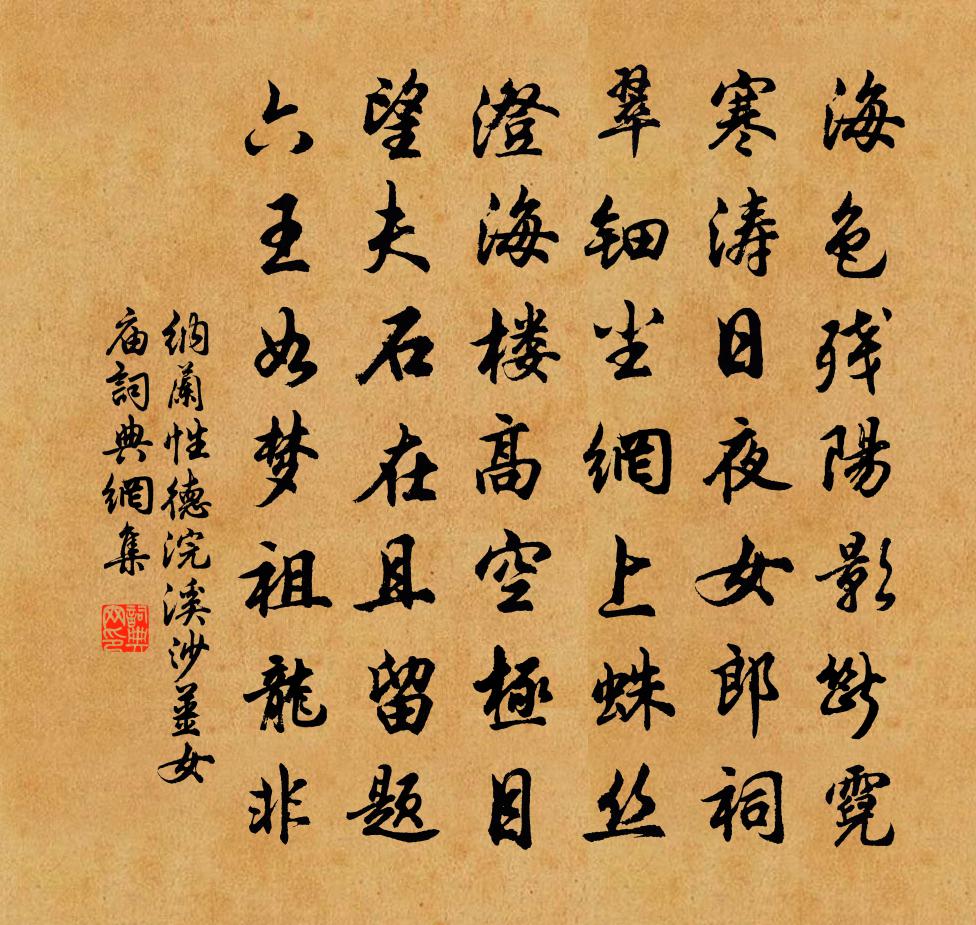 海色残陽影斷霓
寒涛日夜女郎祠
翠钿尘網上蛛丝
澄海楼高空極目
望夫石在且留题
六王如梦祖龍非
纳蘭性德浣溪沙薑女
庙詞典網集
詞典网印